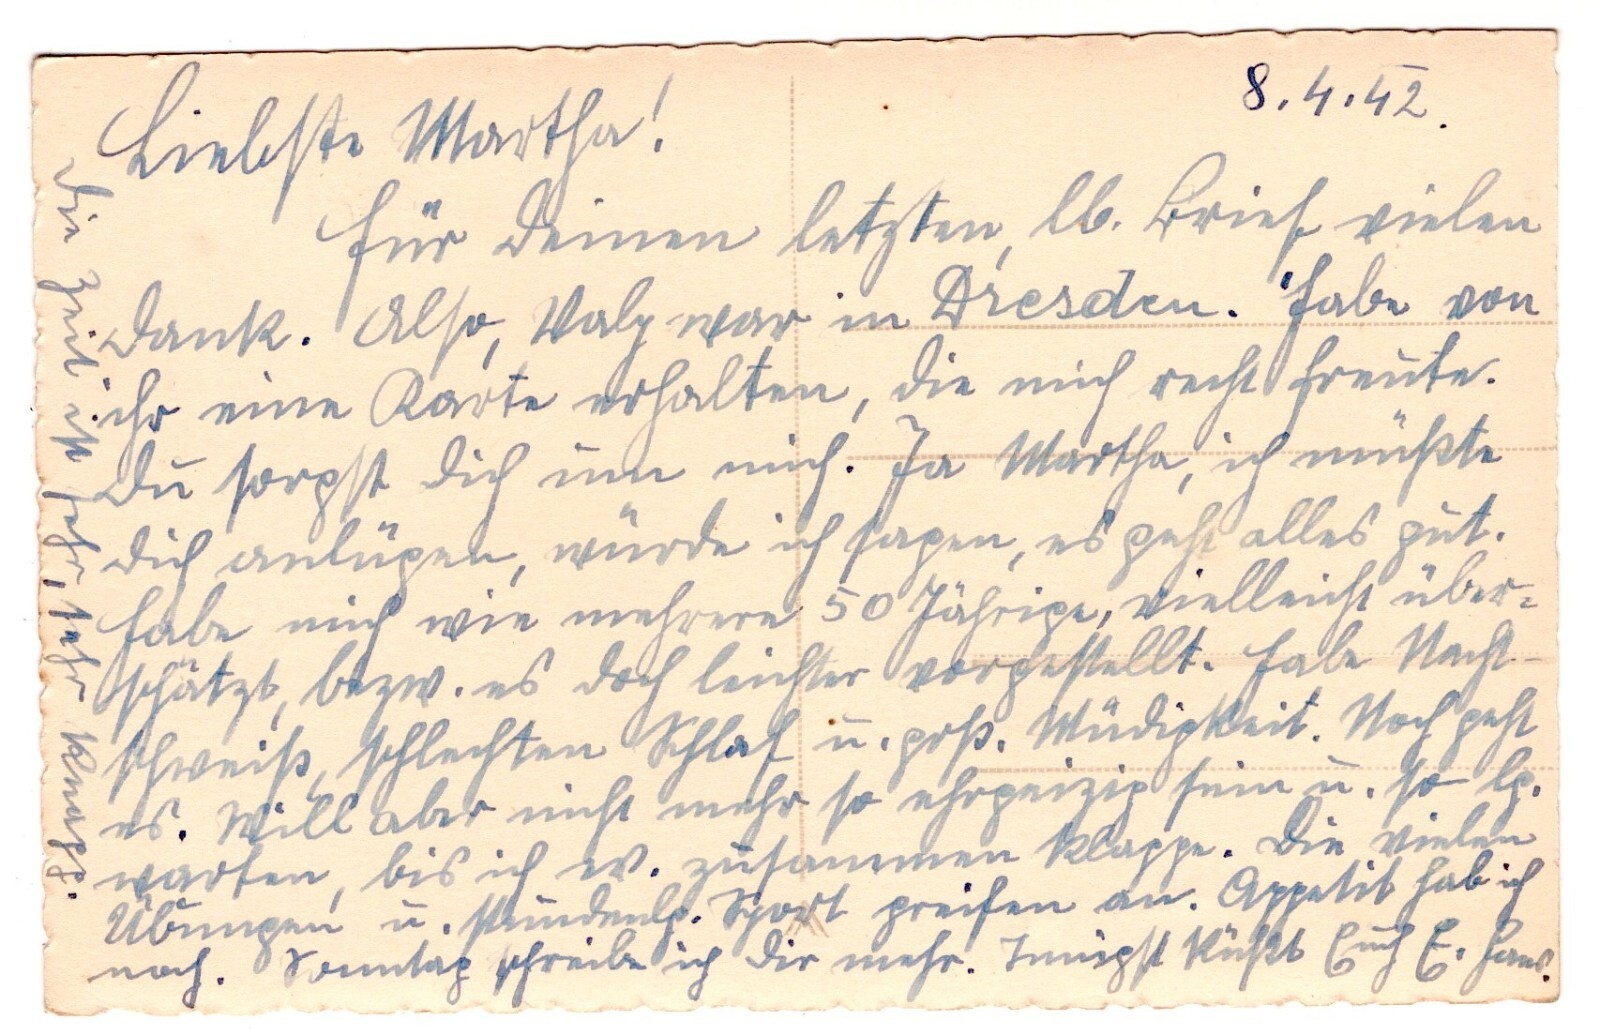 8.4.42.
Liebste Martha!
Für Deinen letzten, lb. Brief vielen
Dank. Also, Valy war in Dresden. Habe von
ihr eine Karte erhalten, die mich recht freute.
Du sorgst Dich um mich. Ja Martha, ich müßte
Dich anlügen, würde ich sagen, es geht alles gut.
Habe mich wie mehrere 50 Jährige, vielleicht über-
schätzt, bezw. es doch leichter vorgestellt. Habe Nacht-
schweiß, schlechten Schlaf u. groß. Müdigkeit. Noch geht
es. Will aber nicht mehr so ehrgeizig sein u. so lg.
warten, bis ich ev. zusammen klappe. Die vielen
Übungen u. stundenlg. Sport greifen an. Appetit hab ich
noch. Sonntag schreibe ich Dir mehr. Innigst küßt Euch E. Hans.
Die Zeit ist sehr, sehr knapp.